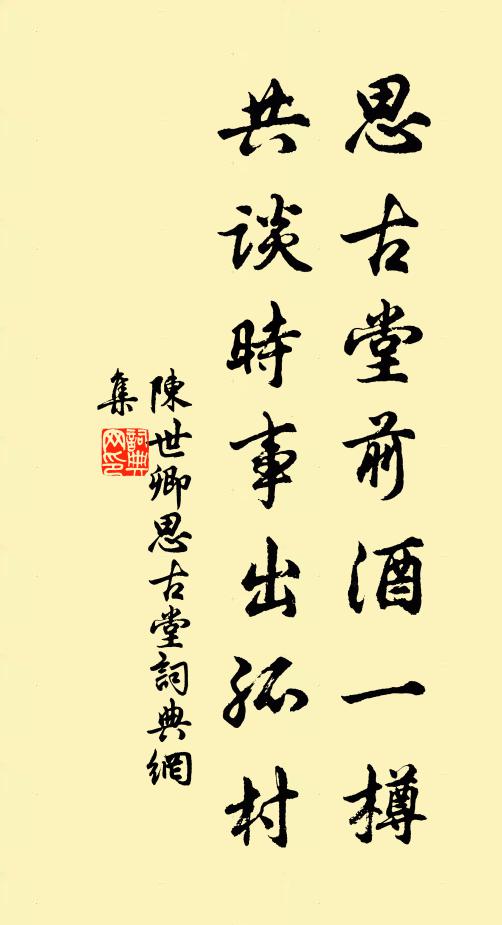 思古堂前酒一樽
共談時事出孤村
陳世卿思古堂詞典網
集
詞典
网印